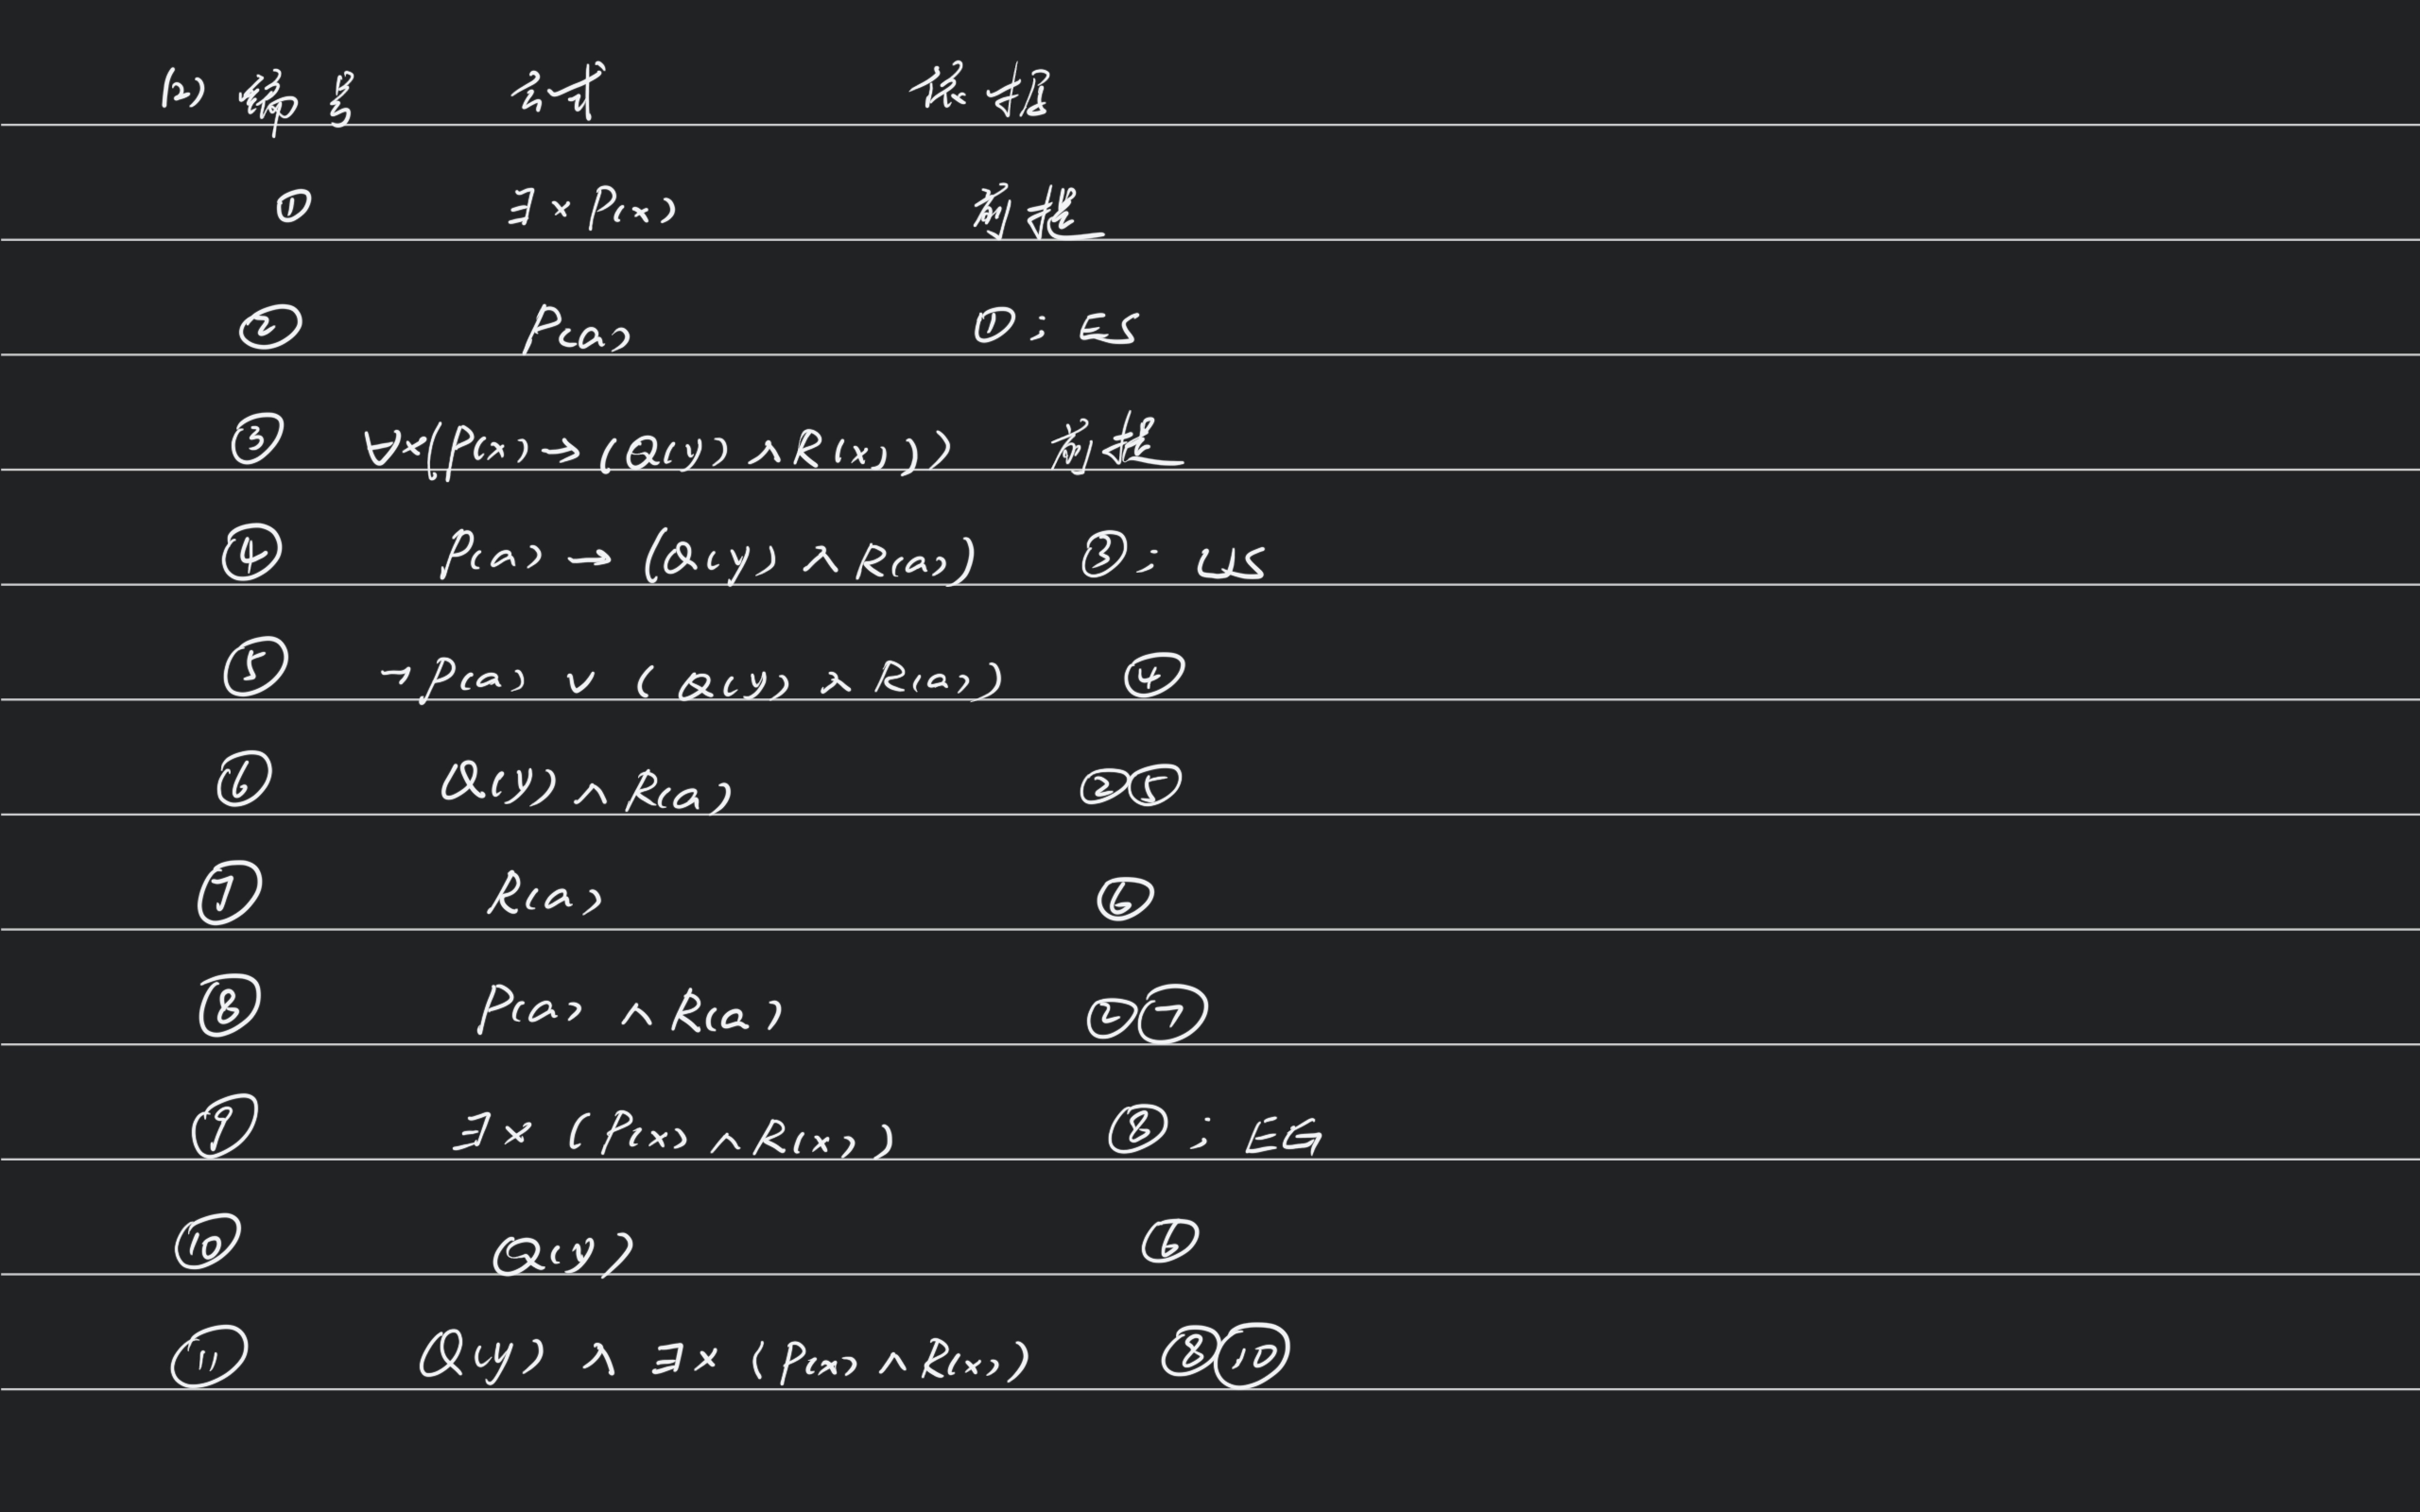 (2) 编号 公式 依据
① ∃x P(x) 前提
② P(a) ①; ES
③ ∀x(P(x)→(Q(y)∧R(x))) 前提
④ P(a)→(Q(y)∧R(a)) ③; US
⑤ ¬P(a)∨(Q(y)∧R(a)) ④
⑥ Q(y)∧R(a) ②⑤
⑦ R(a) ⑥
⑧ P(a)∧R(a) ②⑦
⑨ ∃x(P(x)∧R(x)) ⑧; EG
⑩ Q(y) ⑥
⑪ Q(y)∧∃x(P(x)∧R(x)) ⑧⑩